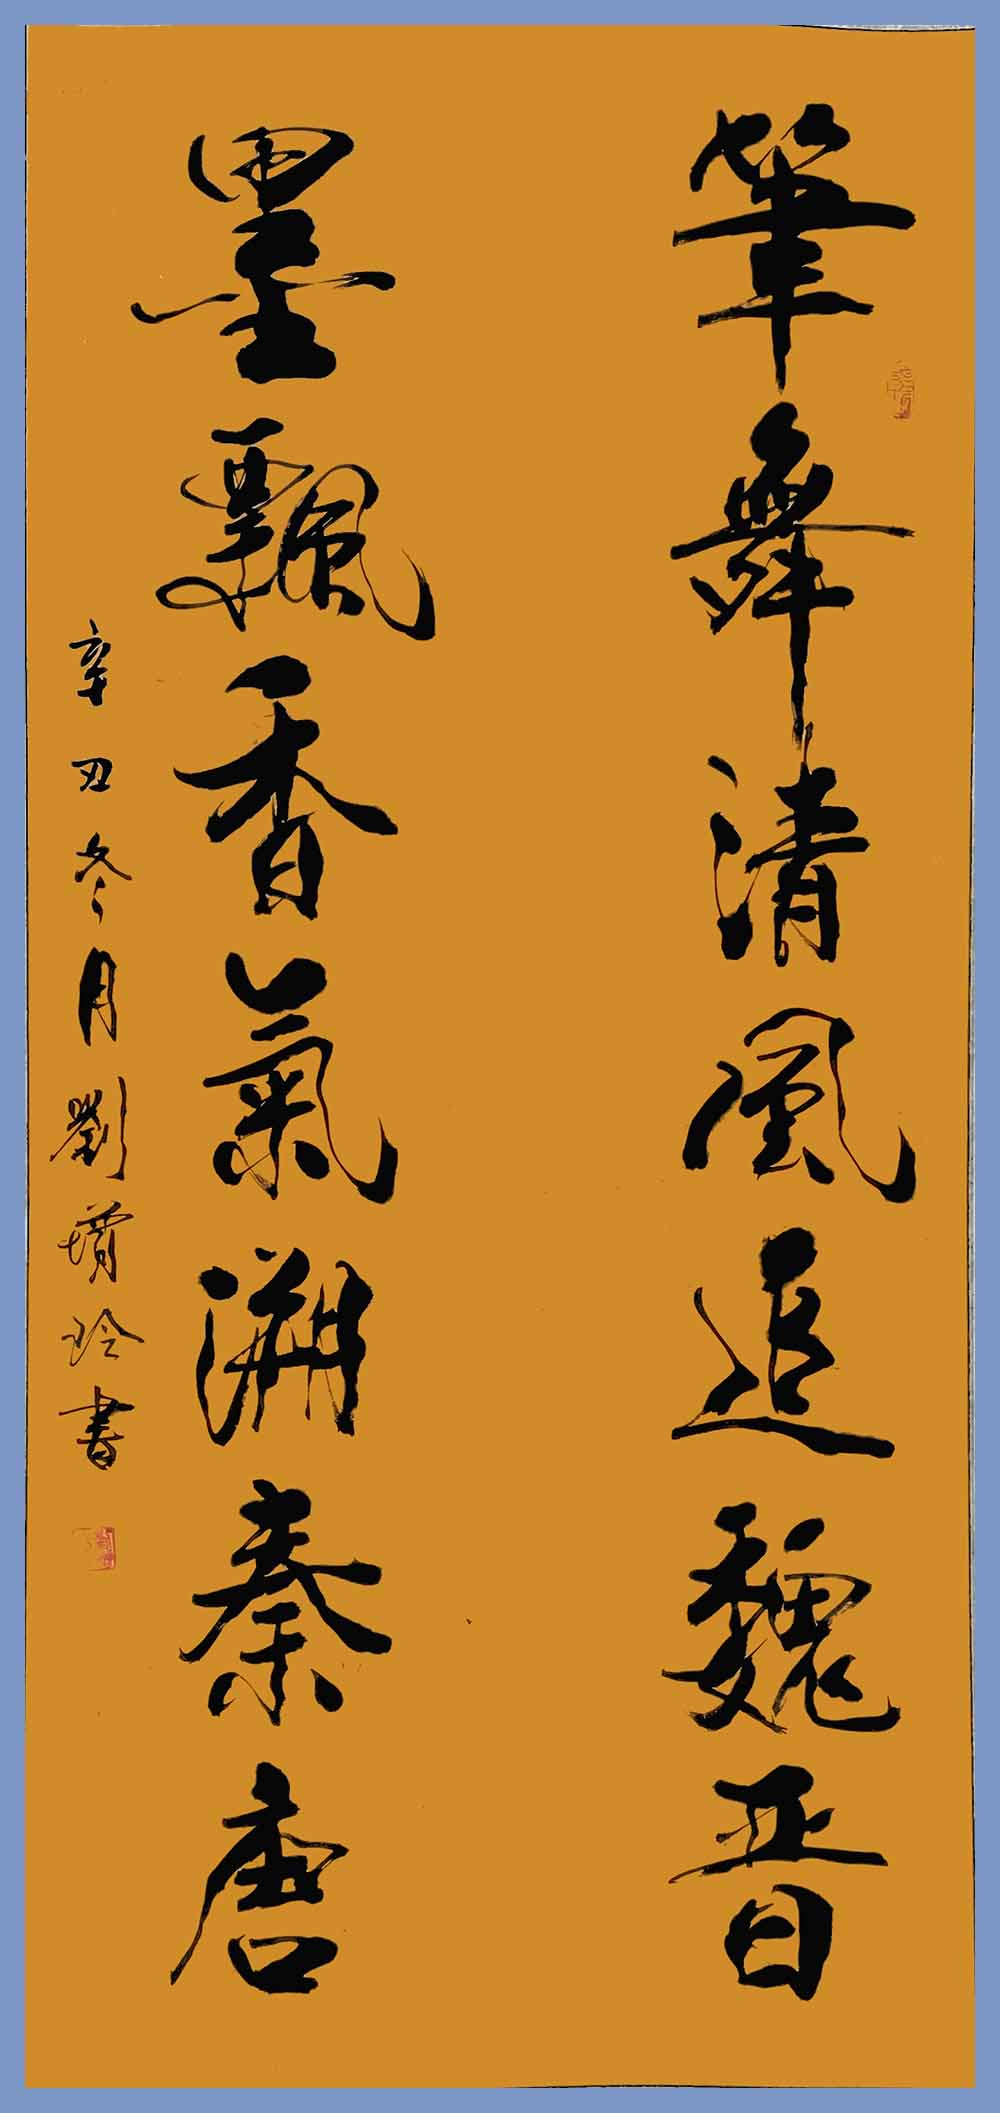 筆舞清風追魏晉
墨飄香氣溯秦唐
辛丑冬月劉瓚玲書